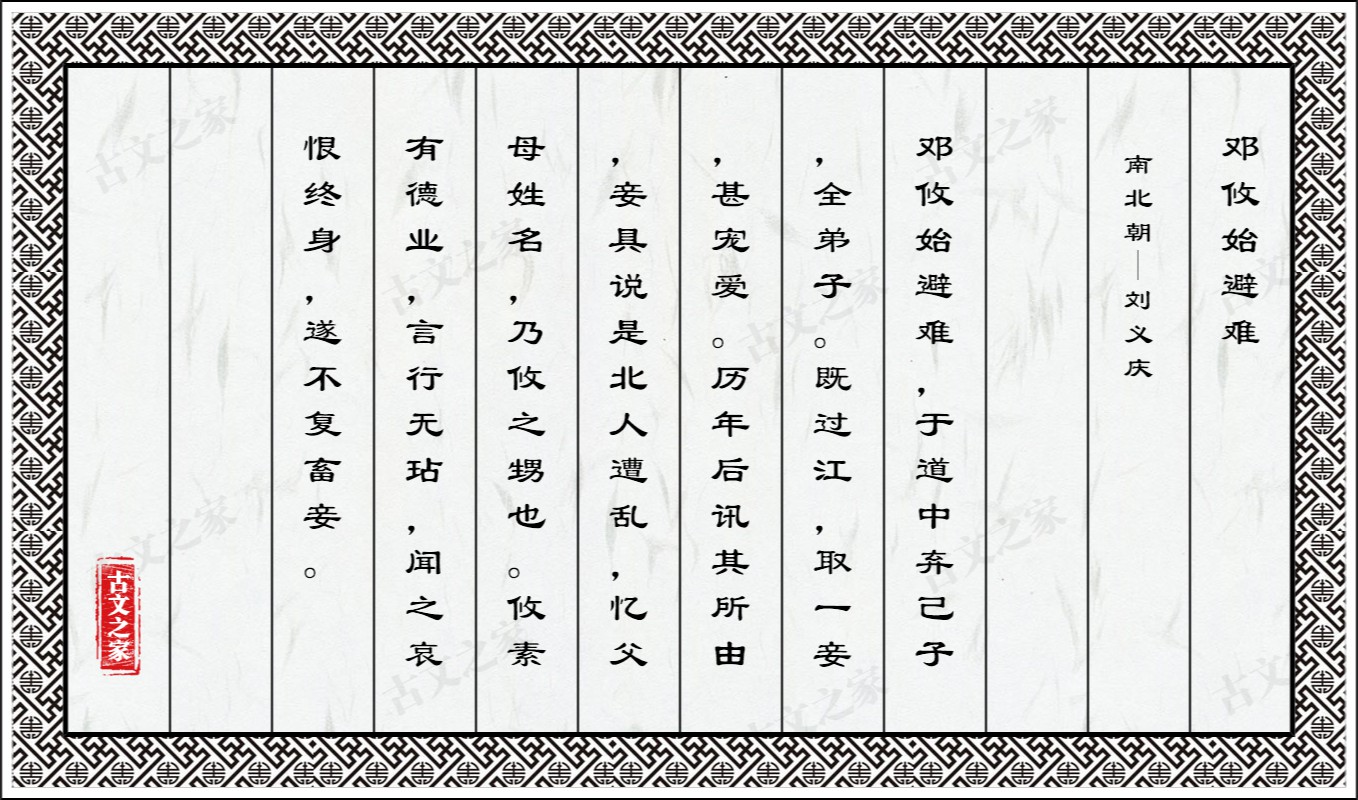 邓攸始避难
南北朝—刘义庆
邓攸始避难，于道中弃己子
，全弟子。既过江，取一妾
，甚宠爱。历年后讯其所由
，妾具说是北人遭乱，忆父
母姓名，乃攸之甥也。攸素
有德业，言行无玷，闻之哀
恨终身，遂不复畜妾。
古文之家